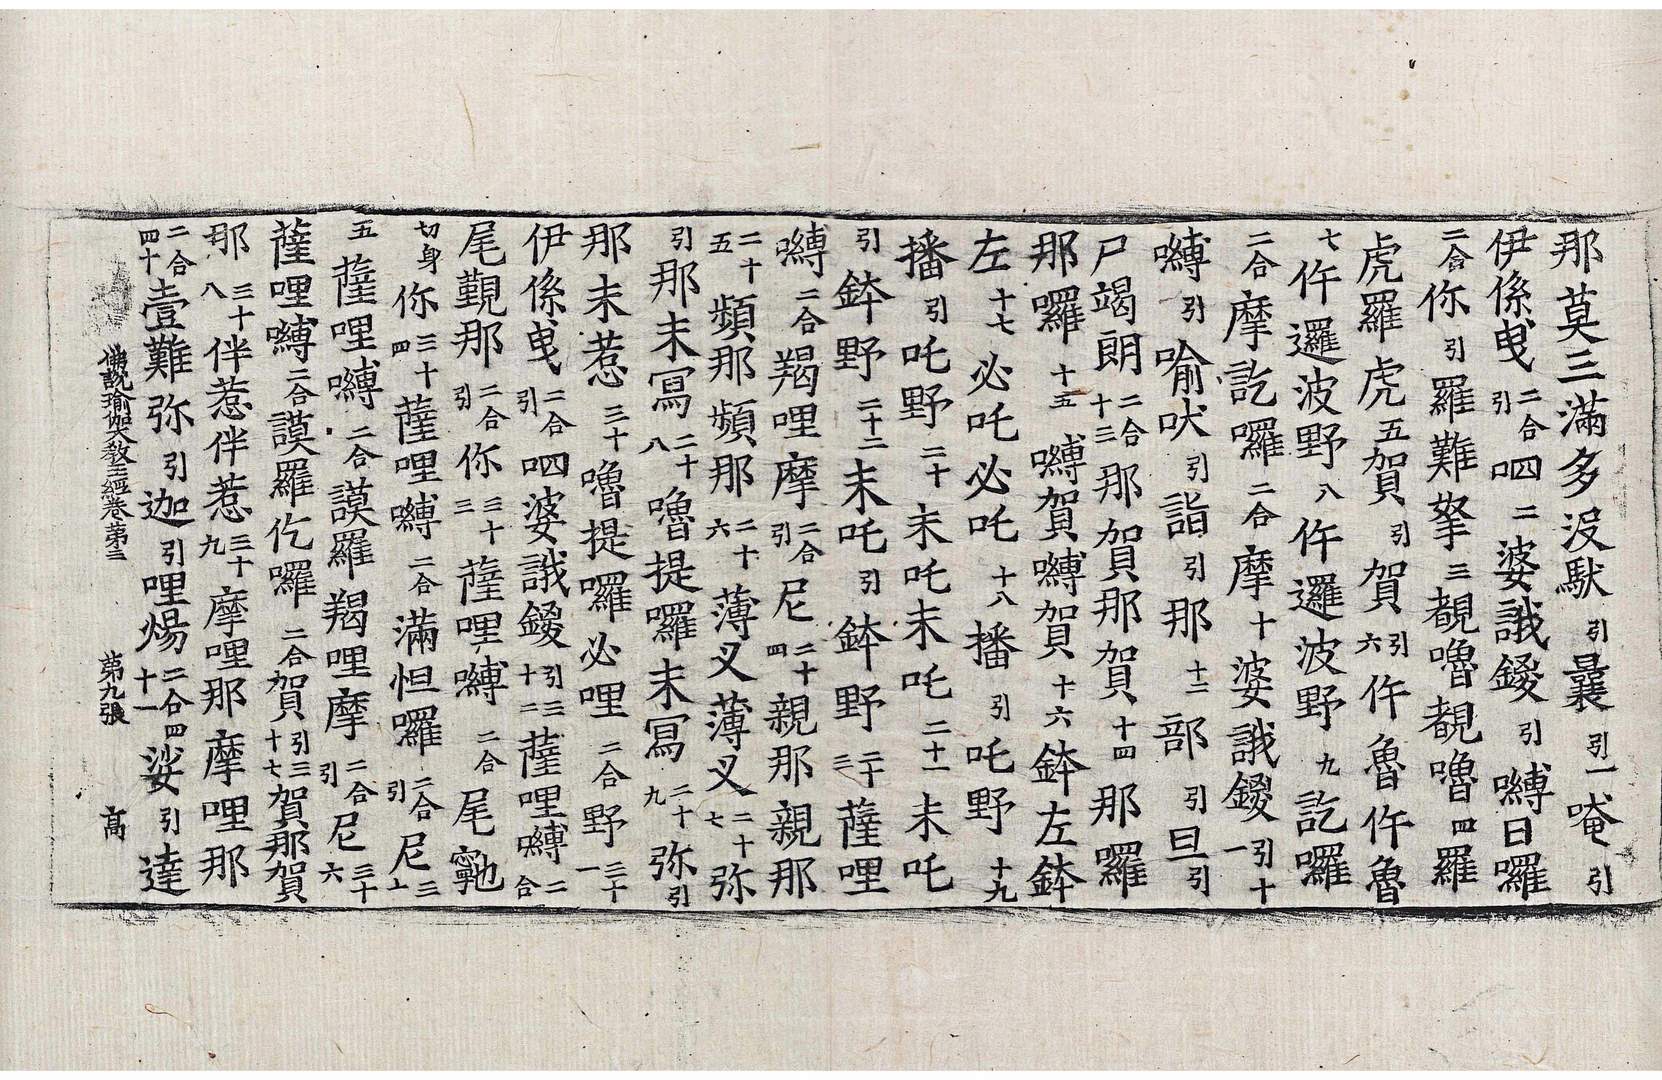 那莫三滿多沒馱引曩引一唵引
伊係曳二合引呬二婆誐鑁引嚩日囉
二合你引羅難拏三覩嚕覩嚕四羅
虎羅虎五賀引賀引六仵魯仵魯
七仵邏波野八仵邏波野九訖囉
二合摩訖囉二合摩十婆誐鑁引十一
嚩引喻吠引詣引那十二部引旦引
尸竭朗二合十三那賀那賀十四那囉
那囉十五嚩賀嚩賀十六鉢左鉢
左十七必吒必吒十八播引吒野十九
播引吒野二十末吒末吒二十一末吒
引鉢野二十二末吒引鉢野二十三薩哩
嚩二合羯哩摩二合引尼二十四親那親那
二十五頻那頻那二十六薄叉薄叉二十七弥
引那末冩二十八嚕提囉末冩二十九弥引
那末惹三十嚕提囉必哩二合野三十一
伊係曳二合引呬婆誐鑁引三十二薩哩嚩二合
尾覲那二合引你三十三薩哩嚩二合尾
切身你三十四薩哩嚩二合滿怛囉二合引尼三十
五薩哩嚩二合謨羅羯哩摩二合引尼三十六
薩哩嚩二合謨羅仡囉二合賀引三十七賀那賀
那三十八伴惹伴惹三十九摩哩那摩哩那
四十壹難弥引迦引哩煬二合四十一娑引達
佛說瑜伽大教王經卷第三 第九張 高